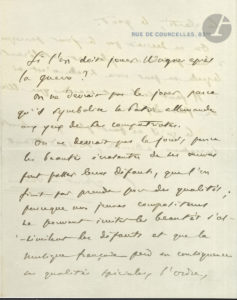 RUE DE COURCELLES, 83
Si l'on doit jouer Wagner après
la guerre.
On ne devrait pas le jouer parce
qu'il symbolise la Patrie allemande
aux yeux de ses compatriotes.
On ne devrait pas le jouer, parce
les beautés de ses œuvres
font passer leurs défauts, que l'on
finit par prendre pour des qualités,
puisque nos jeunes compositeurs
ne pouvant imiter les beautés
les défauts et que la
musique française perd en conséquence
ses qualités spéciales, l'ordre,